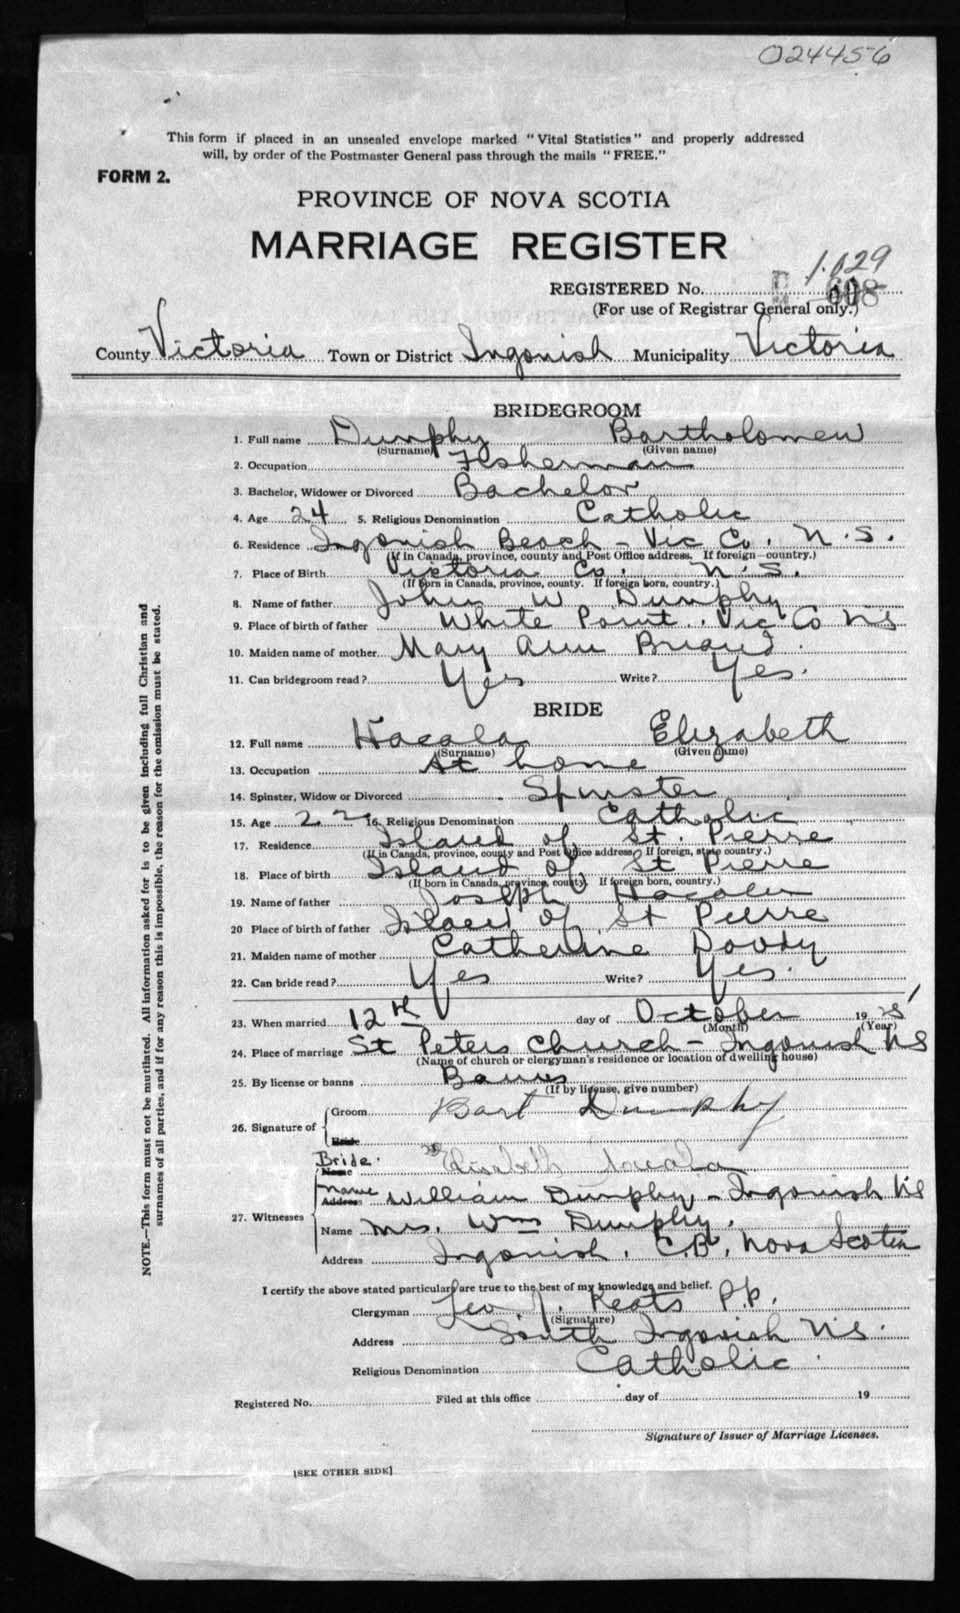 024456
This form if placed in an unsealed envelope marked "Vital Statistics" and properly addressed
will, by order of the Postmaster General pass through the mails "FREE."
FORM 2.
PROVINCE OF NOVA SCOTIA
MARRIAGE REGISTER
1.029
REGISTERED No. 608
(For use of Registrar General only.)
County Victoria Town or District Ingonish Municipality Victoria
BRIDEGROOM
1. Full name Dunphy Bartholomew
(Surname) (Given name)
2. Occupation Fisherman
3. Bachelor, Widower or Divorced Bachelor
4. Age 24 5. Religious Denomination Catholic
6. Residence Ingonish Beach - Vic Co. N.S.
(If in Canada, province, county and Post Office address. If foreign—country.)
7. Place of Birth Victoria Co. N.S.
(If born in Canada, province, county. If foreign born, country.)
8. Name of father John W Dunphy
9. Place of birth of father White Point. Vic Co NS
10. Maiden name of mother Mary Ann Briand.
11. Can bridegroom read? Yes Write? Yes.
BRIDE
12. Full name Hacala Elizabeth
(Surname) (Given name)
13. Occupation At home
14. Spinster, Widow or Divorced Spinster
15. Age 22 16. Religious Denomination Catholic
17. Residence Island of St. Pierre
(If in Canada, province, county and Post Office address. If foreign, state country.)
18. Place of birth Island of St Pierre
(If born in Canada, province, county. If foreign born, country.)
19. Name of father Joseph
20 Place of birth of father Island of St Pierre
21. Maiden name of mother Catherine Doody
22. Can bride read? Yes Write? Yes.
23. When married 12th day of October 19
(Month) (Year)
24. Place of marriage St Peters Church - Ingonish NS
(Name of church or clergyman's residence or location of dwelling house)
25. By license or banns Banns
(If by license, give number)
26. Signature of Groom Bart Dunphy
Bride
Bride. Name Elisabeth
Name Address William Dunphy, - Ingonish NS
27. Witnesses Name Mrs. Wm Dunphy.
Address Ingonish, C.B. Nova Scotia
I certify the above stated particulars are true to the best of my knowledge and belief.
Clergyman Leo J. Keats P.P.
(Signature)
Address South Ingonish N.S.
Religious Denomination Catholic.
Registered No. Filed at this office day of 19
Signature of Issuer of Marriage Licenses.
[SEE OTHER SIDE]
NOTE.—This form must not be mutilated. All information asked for is to be given including full Christian and
surnames of all parties, and if for any reason this is impossible, the reason for the omission must be stated.